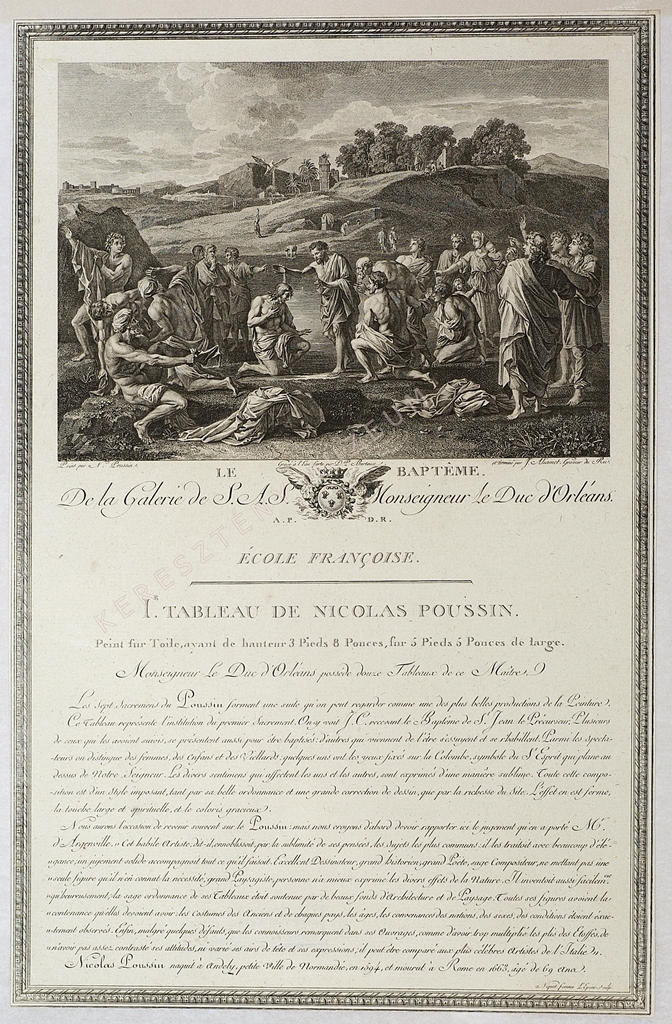 Peint par N. Poussin.
Gravé à l'Eau forte par
et terminé par J. Aliamet, Graveur du Roi.
LE BAPTÊME.
De la Galerie de S. A. S. Monseigneur Le Duc d'Orléans.
A. P. D. R.
ÉCOLE FRANÇOISE.
Ir. TABLEAU DE NICOLAS POUSSIN.
Peint sur Toile, ayant de hauteur 3 Pieds 8 Pouces, sur 5 Pieds 5 Pouces de large.
Monseigneur Le Duc d'Orléans possede douze Tableaux de ce Maître.
Les Sept Sacremens du Poussin forment une suite qu'on peut regarder comme une des plus belles productions de la Peinture.
Ce Tableau représente l'institution du premier Sacrement. On y voit J. C. recevant le Baptême de S. Jean le Précurseur. Plusieurs
de ceux qui les avoient suivis, se présentent aussi pour être baptisés: d'autres qui viennent de l'être s'essuyent et se rhabillent. Parmi les specta-
-teurs on distingue des femmes, des Enfans et des Vieillards: quelques uns ont les yeux fixés sur la Colombe, symbole du S. Esprit qui plane au
dessus de Notre Seigneur. Les divers sentimens qui affectent les uns et les autres, sont exprimés d'une manière sublime. Toute cette compo-
-sition est d'un Style imposant, tant par sa belle ordonnance et une grande correction de dessin, que par la richesse du Site. L'effet en est ferme,
la touche large et spirituelle, et le coloris gracieux.
Nous aurons l'occasion de revenir souvent sur le Poussin: mais nous croyons d'abord devoir rapporter ici le jugement qu'en a porté Mr.
d'Argenville. "Cet habile Artiste, dit-il, ennoblissoit, par la sublimité de ses pensées, les Sujets les plus communs: il les traitoit avec beaucoup d'élé-
"gance; un jugement solide accompagnoit tout ce qu'il faisoit. Excellent Dessinateur, grand historien, grand Poëte, sage Compositeur, ne mettant pas une
"seule figure qu'il n'en connût la necessité; grand Paysagiste, personne n'a mieux exprimé les divers effets de la Nature. Il inventoit aussi facilemt.
"qu'heureusement; la sage ordonnance de ses Tableaux étoit soutenue par de beaux fonds d'Architecture et de Paysage. Toutes ses figures avoient la
"contenance qu'elles devoient avoir: les Costumes des Anciens et de chaques pays, les âges, les convenances des nations, des sexes, des conditions étoient exac-
"-tement observés. Enfin, malgré quelques défauts, que les connoisseurs remarquent dans ses Ouvrages, comme d'avoir trop multiplié les plis des Etoffes, de
"n'avoir pas assez contrasté ses attitudes, ni varié ses airs de tête et ses expressions; il peut être comparé aux plus célèbres Artistes de l'Italie".
Nicolas Poussin naquit à Andely, petite Ville de Normandie, en 1594, et mourut à Rome en 1665, âgé de 69 Ans.
KERESZTÉNY MÚZEUM